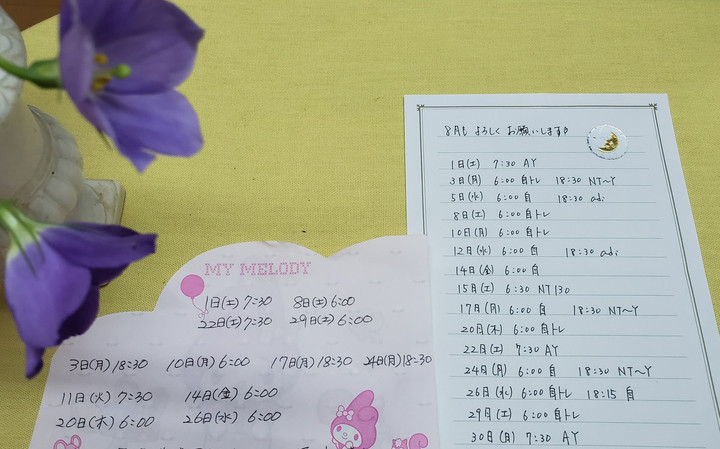 MY MELODY
1日(土) 7:30 8日(土) 6:00
22日(土) 7:30 29日(土) 6:00
3日(月) 18:30 10日(月) 6:00 17日(月) 18:30 24日(月) 18:30
11日(火) 7:30 14日(金) 6:00
20日(木) 6:00 26日(水) 6:00
8月も よろしく お願いします
1日(土) 7:30 AY
3日(月) 6:00 自トレ 18:30 NT〜Y
5日(水) 6:00 自 18:30 adi
8日(土) 6:00 自トレ
10日(月) 6:00 自トレ
12日(水) 6:00 自 18:30 adi
14日(金) 6:00 自
15日(土) 6:30 NT130
17日(月) 6:00 自 18:30 NT〜Y
20日(木) 6:00 自トレ
22日(土) 7:30 AY
24日(月) 6:00 自 18:30 NT〜Y
26日(水) 6:00 自トレ 18:15 自
29日(土) 6:00 自トレ
30日(月) 7:30 AY